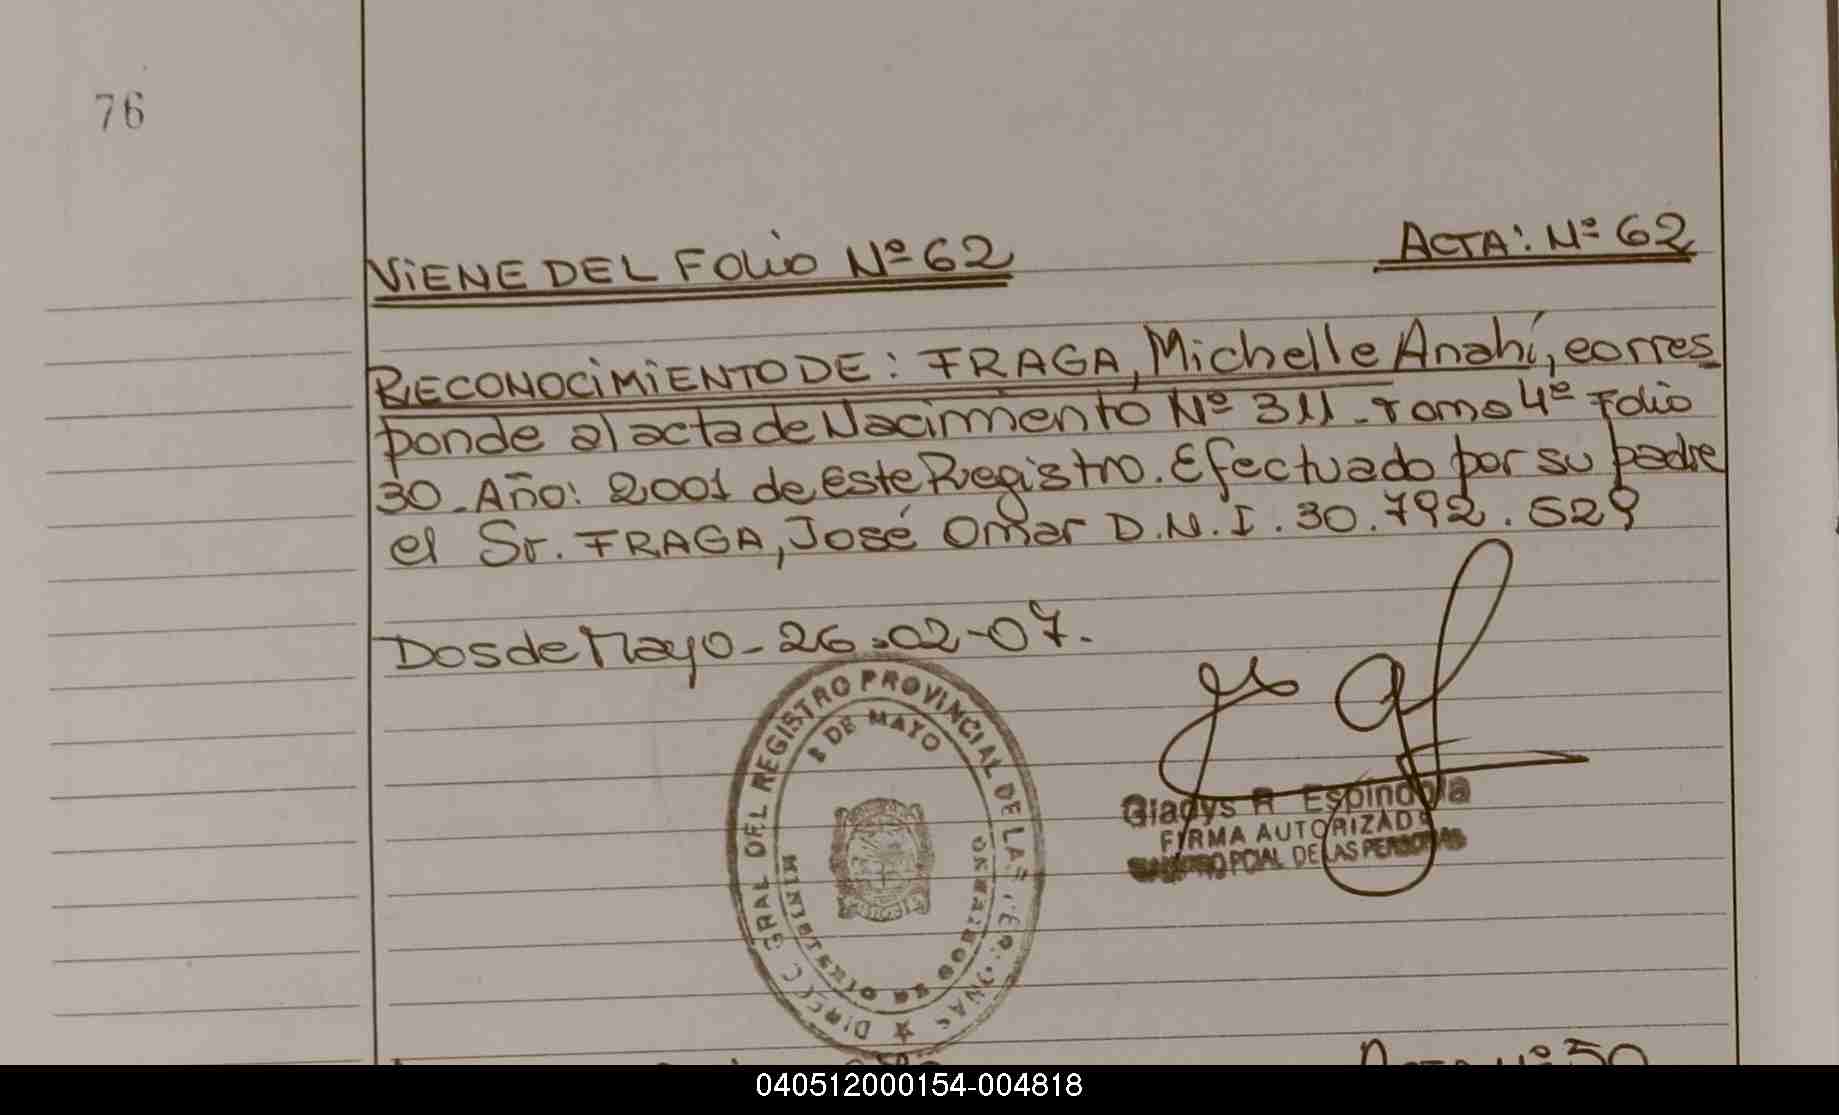 76
VIENE DEL FOLIO Nº 62 ACTA: Nº 62
RECONOCIMIENTO DE: FRAGA, Michelle Anahí, corres
ponde al acta de Nacimiento Nº 311 - Tomo 4º Folio
30 - Año: 2001 de Este Registro. Efectuado por su padre
el Sr. FRAGA, José Omar D.N.I. 30.792.529
Dos de Mayo - 26-02-07.
DIRECC GRAL DEL REGISTRO PROVINCIAL DE LAS PERSONAS
2 DE MAYO
MINISTERIO DE GOBIERNO
Gladys R Espíndola
FIRMA AUTORIZADA
REGISTRO PCIAL DE LAS PERSONAS
ACTA Nº 50
040512000154-004818